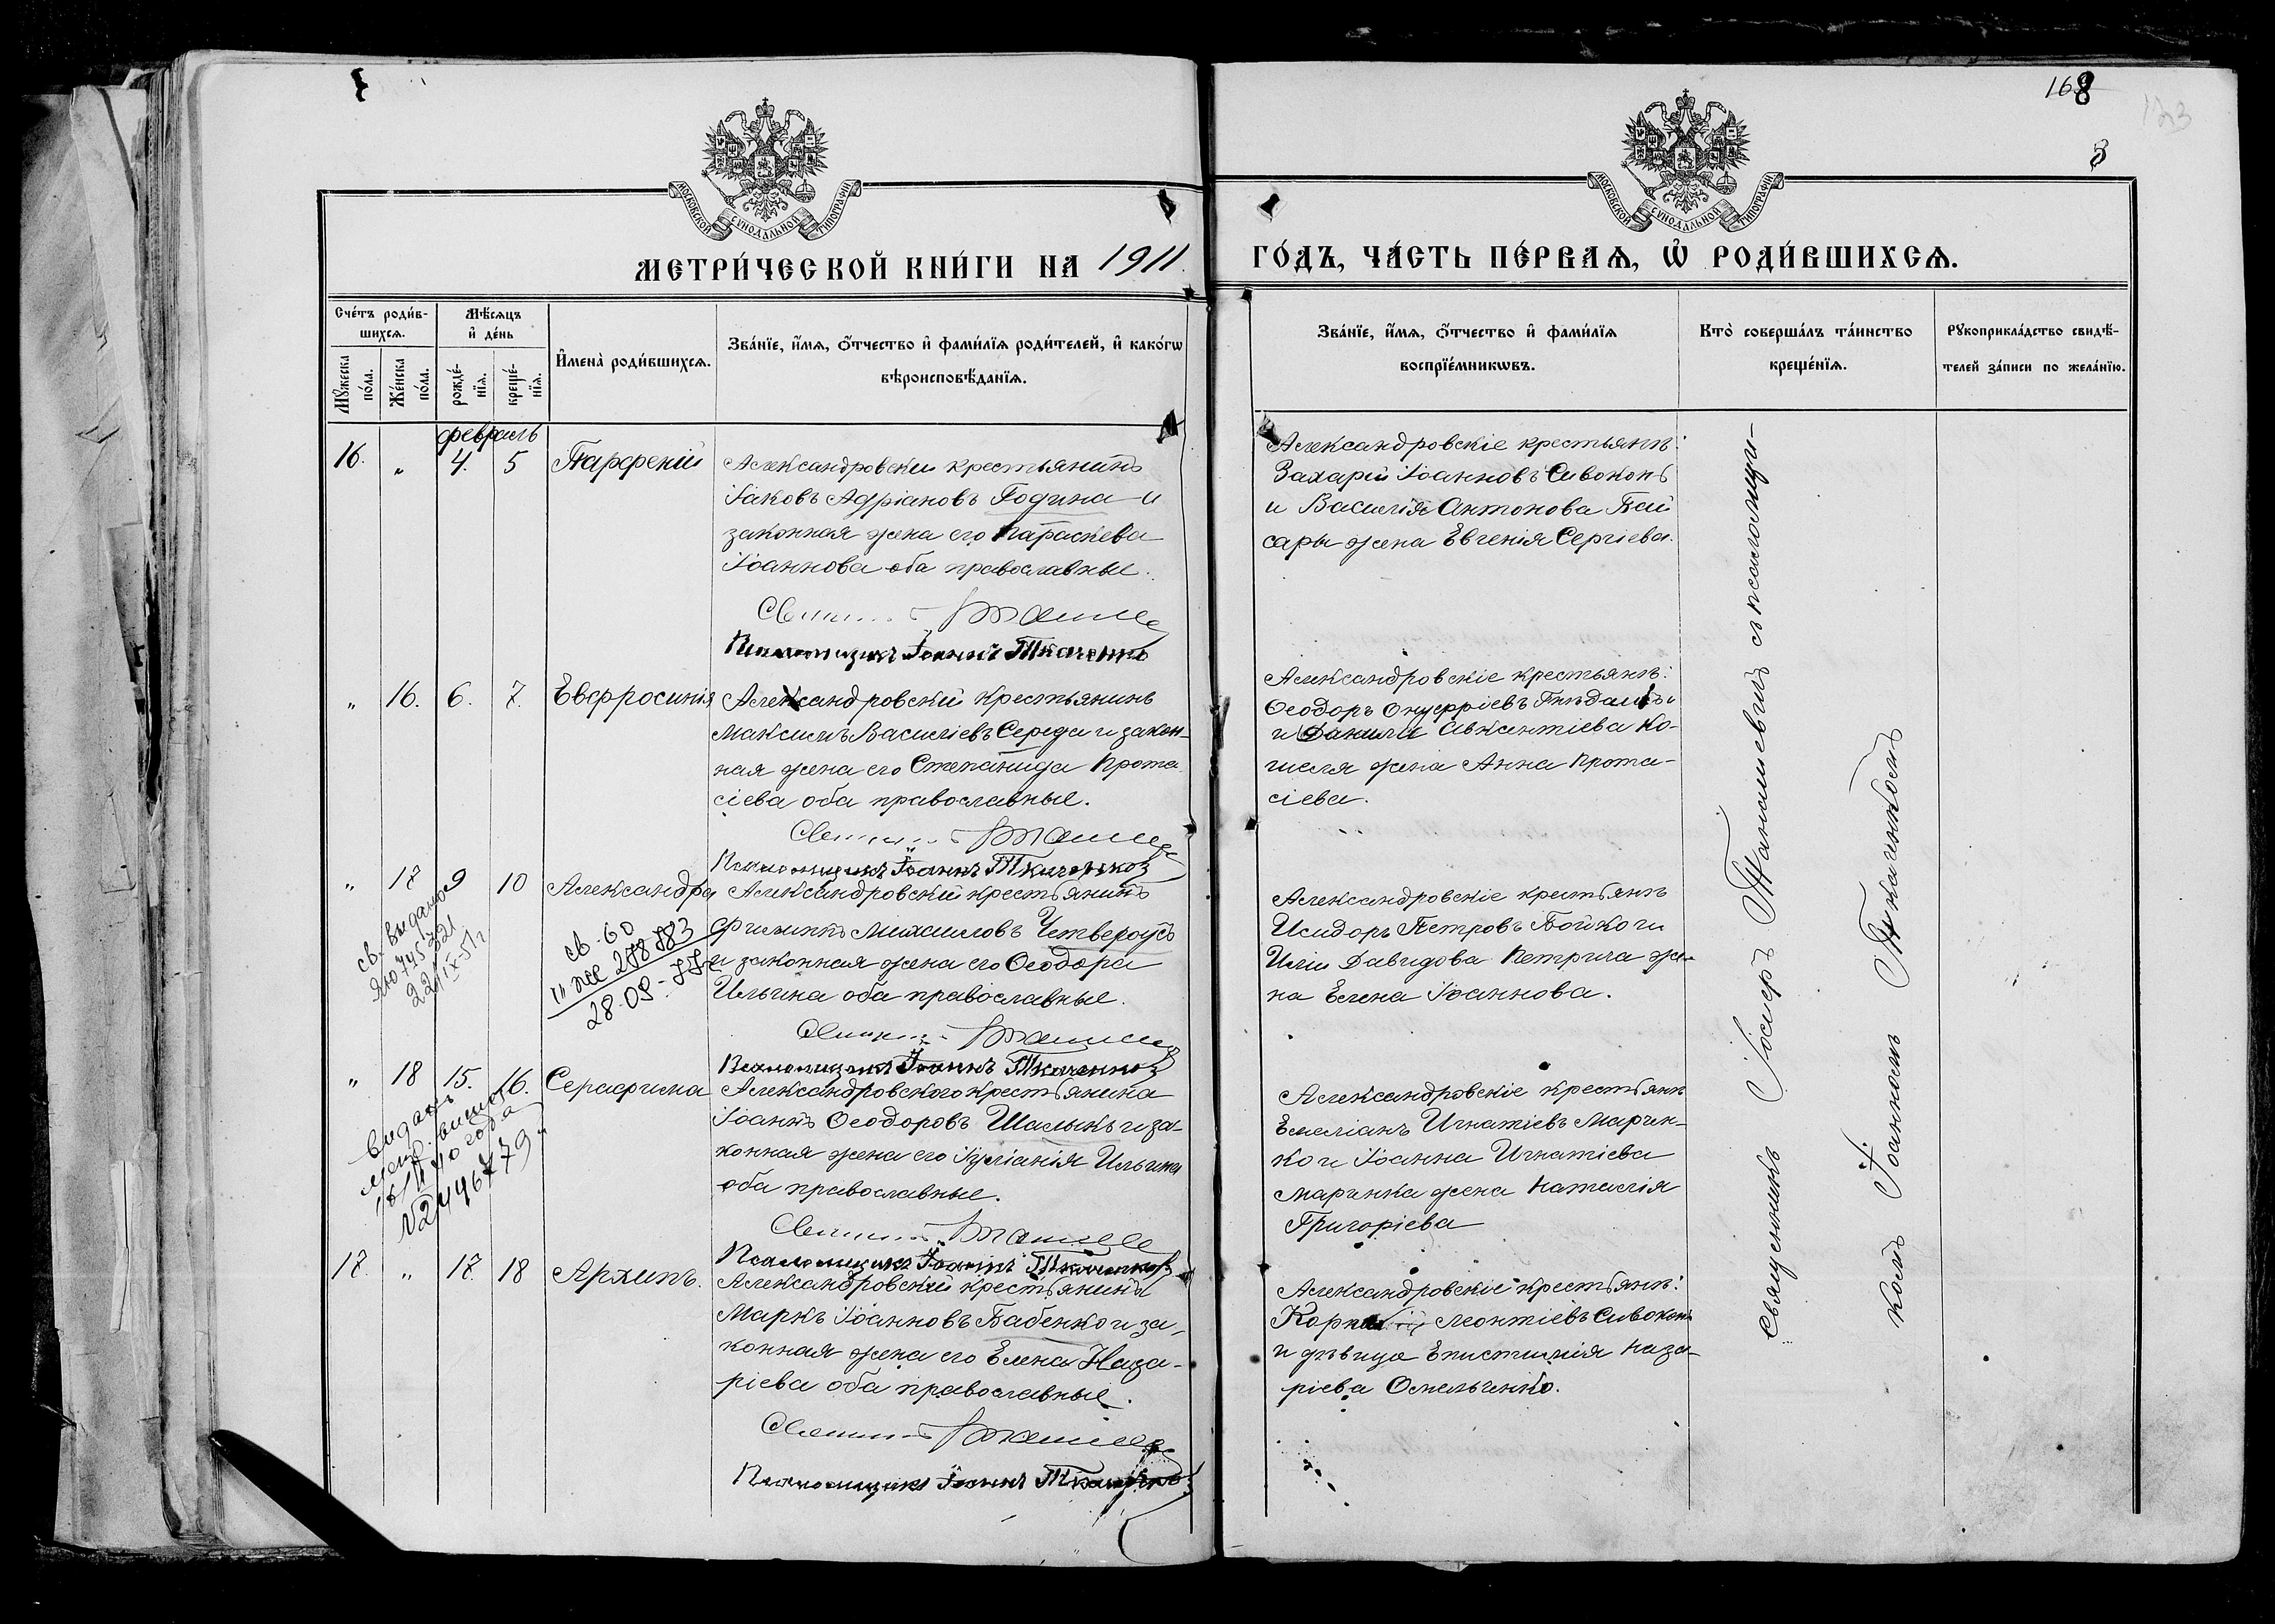 168
МОСКОВСКОЙ СѴНОДАЛЬНОЙ ТИПОГРАФІИ
МОСКОВСКОЙ СѴНОДАЛЬНОЙ ТИПОГРАФІИ
МЕТРИ́ЧЕСКОЙ КНИ́ГИ НА 1911
ГО́ДЪ, ЧА́СТЬ ПЕ́РВАѦ, Ѡ҆ РОДИ́ВШИХСѦ.
Сче́тъ роди́в-
шихсѧ.
Мꙋ́жеска
по́ла.
Же́нска
по́ла.
Мѣ́сѧцъ
и҆ де́нь
рожде́-
нїѧ.
креще́-
нїѧ.
И҆мена̀ роди́вшихсѧ.
Зва́нїе, и҆́мѧ, ѻ҆́тчество и҆ фами́лїѧ роди́телей, и҆ како́гѡ
вѣроисповѣ́данїѧ.
Зва́нїе, и҆́мѧ, ѻ҆́тчество и҆ фами́лїѧ
воспрїе́мникѡвъ.
Кто̀ соверша́лъ та́инство
креще́нїѧ.
Рꙋкоприкла́дство свидѣ́-
телей за́писи по жела́нїю.
февраль
16. „ 4. 5 Парфеній
Александровскій крестьянинъ
Іаковъ Адріановъ Година и
законная жена его Параскева
Іоаннова оба православные.
Псаломщикъ Іоаннъ Ткаченко
Александровскіе крестьяне:
Захарій Іоанновъ Сивоконь
и Василія Антонова Бай
сары жена Евгенія Сергіева.
„ 16. 6. 7. Евфросинія
Александровскій крестьянинъ
Максимъ Василіевъ Середа и закон-
ная жена его Степанида Прота
сіева оба православные.
Псаломщикъ Іоаннъ Ткаченко
Александровскіе крестьяне:
Ѳеодоръ Онуфріевъ
и Данила Авксентіева Ко-
жена Анна Прота-
сіева.
„ 17 9 10 Александра
Александровскій крестьянинъ
Филиппъ Михаиловъ Четвероусъ
и законная жена его Ѳеодора
Ильина оба православные.
Псаломщикъ Іоаннъ Ткаченко
св. выдано
св. 60
278883
28.09.77
Александровскіе крестьяне
Исидоръ Петровъ Бойко и
Иліи Давидова Петрича же-
на Елена Іоаннова.
„ 18 15. 16. Серафима
Александровского крестьянина
Іоаннъ Ѳеодоровъ Шалыкъ и за-
конная жена его Іуліанія Ильина
оба православные.
Псаломщикъ Іоаннъ Ткаченко
40 года
№ 2446779
Александровскіе крестьяне
Емеліанъ Игнатіевъ Марчен-
ко и Іоанна Игнатіева
Марченка жена Наталія
Григоріева
17. „ 17. 18 Архипъ.
Александровскій крестьянинъ
Маркъ Іоанновъ Бабенко и за-
конная жена его Елена Наза-
ріева оба православные.
Псаломщикъ Іоаннъ Ткаченко
Александровскіе крестьяне:
Леонтіевъ Сивоконь
и дѣвица Епистимія Наза-
ріева Омельченко.
Священникъ Іосифъ Танашевичъ съ псаломщи-
комъ Іоанномъ Ткаченкомъ